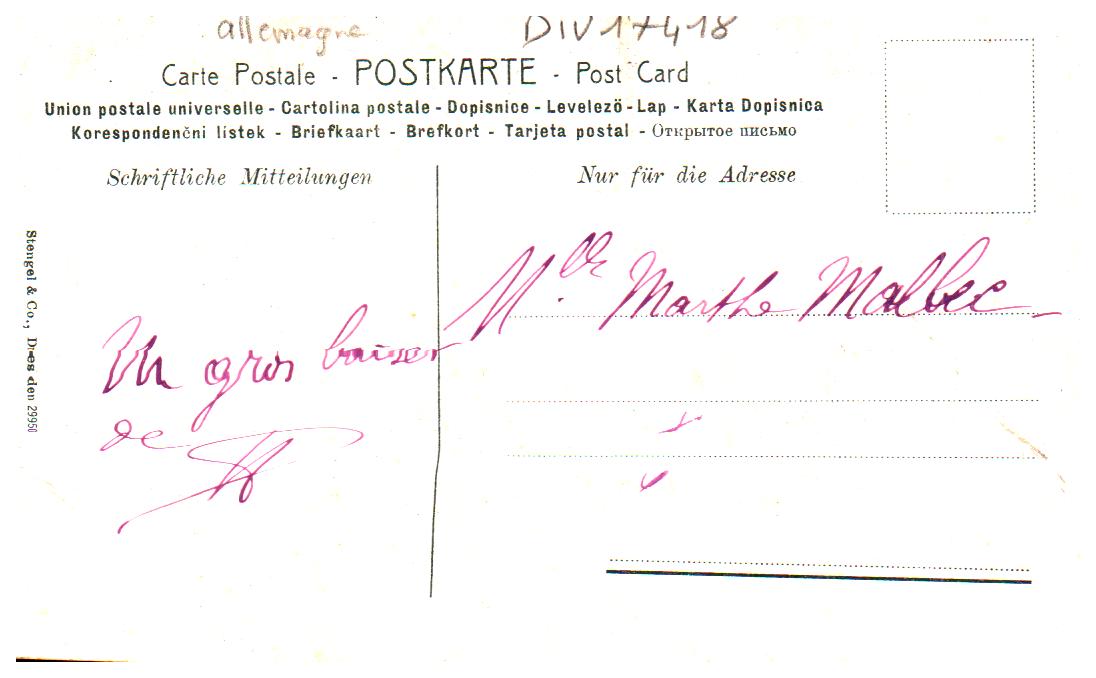 allemagne DIV17418
Carte Postale - POSTKARTE - Post Card
Union postale universelle - Cartolina postale - Dopisnice - Levelező-Lap - Karta Dopisnica
Korespondenčni listek - Briefkaart - Brefkort - Tarjeta postal - Открытое письмо
Schriftliche Mitteilungen
Nur für die Adresse
Stengel & Co., Dresden 29950
Mlle Marthe Malbec
Un gros baiser
de